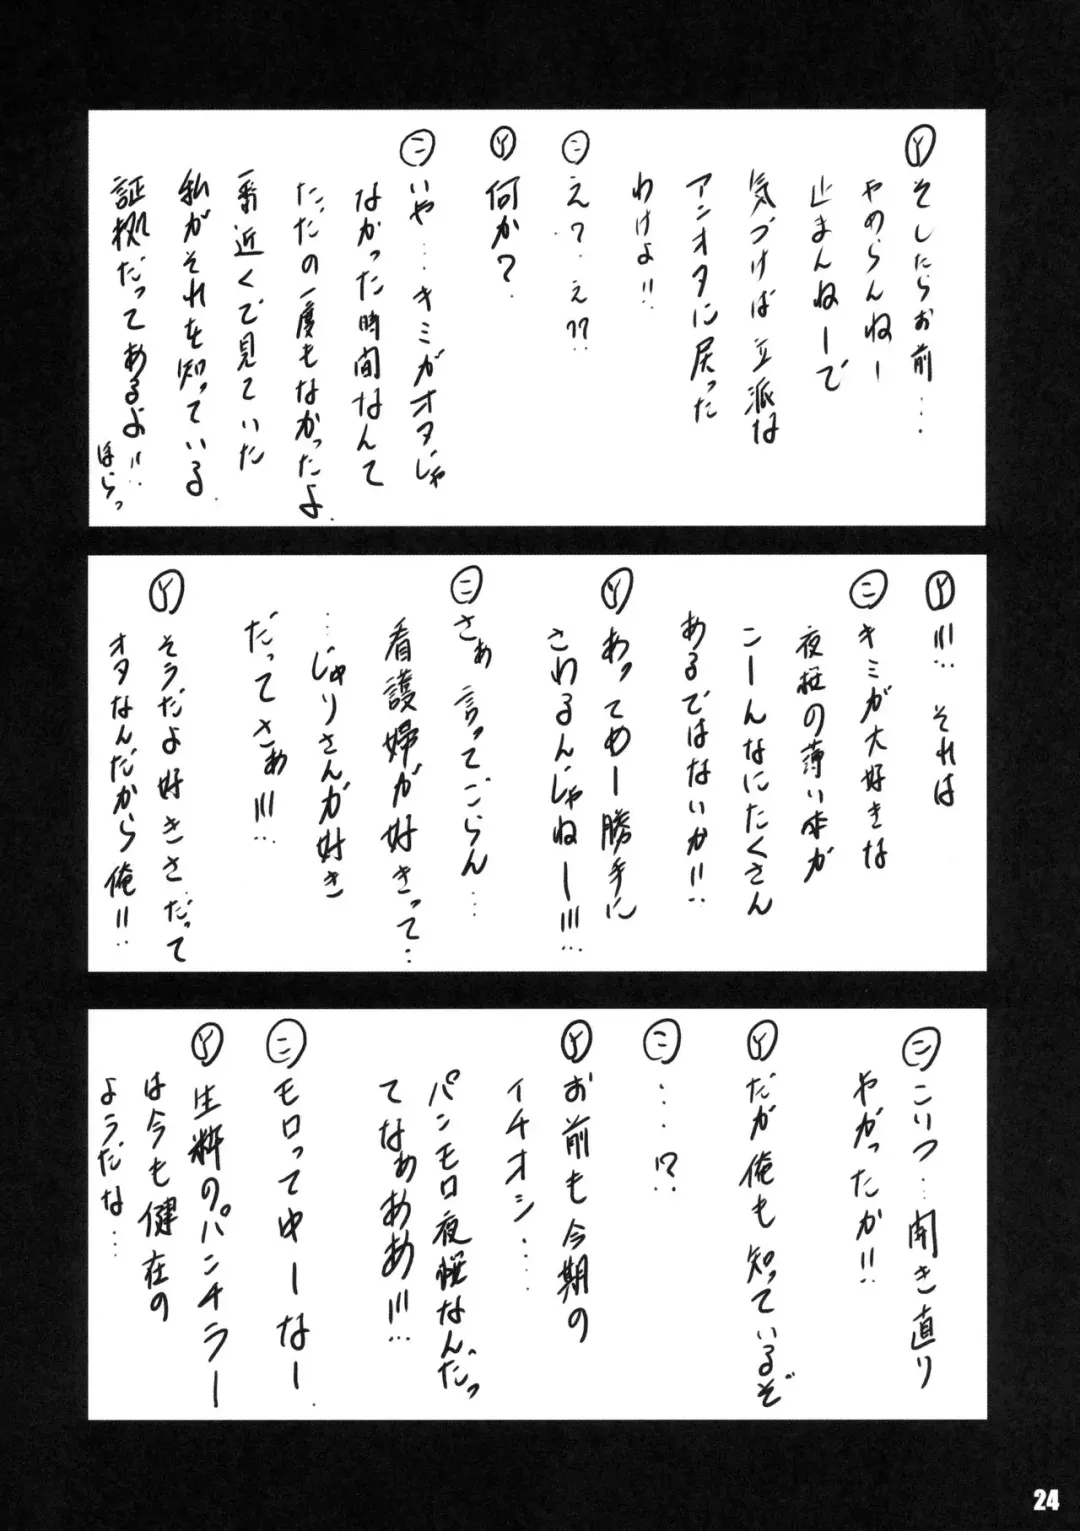 ㇳ そしたらお前…
やめらんねー
止まんねーで
気づけば立派な
アンオタに戻った
わけよ!!
ニ え?え??
ㇳ 何か?
ニ いや…キミがオタじゃ
なかった時間なんて
ただの一度もなかったよ.
一番近くで見ていた
私がそれを知っている.
証拠だってあるよ!!
ほらっ
ㇳ !!!… それは
ニ キミが大好きな
夜桜の薄い本が
こーんなにたくさん
あるではないか!!
ㇳ あってめー勝手に
さわるんじゃねー!!!…
ニ さぁ 言ってごらん…
看護婦が好きって…
…じゅりさんが好き
だってさぁ!!!…
ㇳ そうだよ好きさ…だって
オタなんだから俺!!
ニ こいつ…開き直り
やがったか!!
ㇳ だが俺も知っているぞ
ニ …!?
ㇳ お前も今期の
イチオシ…
パンモロ夜桜なんだっ
てなぁああ!!!…
ニ モロってゆーなー.
ㇳ 生粋のパンチラー
は今も健在の
ようだな…
24